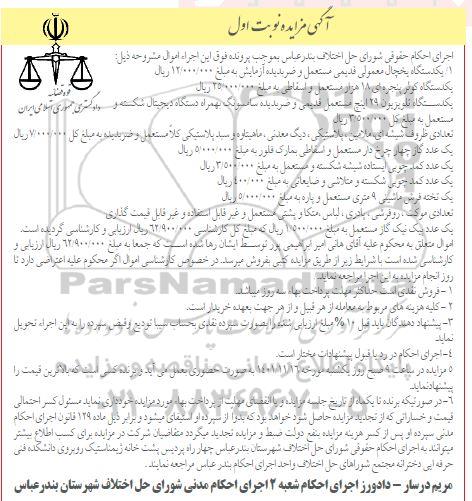 آگهی مزایده نوبت اول
قوه قضائیه
دادگستری جمهوری اسلامی ایران
اجرای احکام حقوقی شورای حل اختلاف بندرعباس بموجب پرونده فوق این اجراء اموال مشروحه ذیل:
۱/ یکدستگاه یخچال معمولی قدیمی مستعمل و ضربدیده آزمایش به مبلغ ۱۲/۰۰۰/۰۰۰ ریال
یکدستگاه کولر پنجره ای ۱۸ هزار مستعمل و اسقاطی به مبلغ ۲۵/۰۰۰/۰۰۰ ریال
یکدستگاه تلویزیون ۲۹ اینچ مستعمل قدیمی و ضربدیده سامسونگ بهمراه دستگاه دیجیتال شکسته و
مستعمل به مبلغ کل ۳/۵۰۰/۰۰۰ ریال
تعدادی ظروف شیشه ای ملامین، پلاستیکی، دیگ معدنی، ماهیتاوه و سبد پلاستیکی کلاً مستعمل و ضربدیده به مبلغ کل ۷/۰۰۰/۰۰۰ ریال
یک عدد گاز چهار چرخ دار مستعمل و اسقاطی بمارک فلور به مبلغ ۵/۰۰۰/۰۰۰ ریال
یک عدد کمد چوبی ایستاده شیشه شکسته و مستعمل به مبلغ ۳/۵۰۰/۰۰۰ ریال
یک عدد کمد چوبی شکسته و متلاشی و ضایعاتی به مبلغ ۴۰۰/۰۰۰ ریال
یک تخته فرش ماشینی ۹ متری مستعمل و پاره به مبلغ ۵/۰۰۰/۰۰۰ ریال
تعدادی موکت، روفرشی، پادری، لباس، متکا و پشتی مستعمل و غیر قابل استفاده و غیر قابل قیمت گذاری
یک عدد پیک نیک گاز مستعمل به مبلغ ۱/۵۰۰/۰۰۰ ریال که مبلغ کل کارشناسی ۶۲/۹۰۰/۰۰۰ ریال ارزیابی و کارشناسی گردیده است.
اموال متعلق به محکوم علیه آقای هانی امیر ابراهیمی پور توسط ایشان رها شده است که جمعا به مبلغ ۶۲/۹۰۰/۰۰۰ ریال ارزیابی و
کارشناسی شده است با شرایط زیر از طریق مزایده کتبی بفروش میرسد. در خصوص کارشناسی اموال اگر محکوم علیه اعتراضی دارد تا
روز انجام مزایده به این اجرا مراجعه نماید.
۱- فروش نقدی است حداکثر مهلت پرداخت بهاء سه روز میباشد.
۲- کلیه هزینه های مربوط به معامله از هر قبیل و از هر جهت بعهده خریدار است.
۳- پیشنهاد دهندگان باید قبل ۱۰% مبلغ ارزیابی شده را بصورت سپرده نقدی بحساب سیبا تودیع و فیض سپرده را به این اجراء تحویل
نماید.
۴- اجرای احکام در رد یا قبول پیشنهادات مختار است.
۵ مزایده در ساعت ۹ صبح روز یکشنبه مورخه ۱۴۰۱/۱۱/۱۶ به صورت حضوری بعمل می آید و برنده کسی است که بالاترین قیمت را
پیشنهاد نماید.
۶- در صورتیکه برنده تا یکماه از تاریخ جلسه مزایده و با انقضای مهلت از پرداخت بهاء مورد مزایده خودداری نماید مسئول کسر احتمالی
قیمت و خساراتی که از تجدید مزایده حاصل شود خواهد بود که بدواً از سپرده او استیفای میشود و برابر ذیل ماده ۱۲۹ قانون اجرای احکام
مدنی سپرده او پس از کسر هزینه مزایده بنفع دولت ضبط و مزایده تجدید میگردد متقاضیان شرکت در مزایده برای کسب اطلاع بیشتر
میتوانند به اجرای احکام حقوقی شورای حل اختلاف شهرستان بندرعباس چهار راه پردیس پشت خانه ژیمناستیک روبروی دانشکده فنی
حرفه ای دخترانه مجتمع شوراهای حل اختلاف واحد اجرای احکام بندر عباس مراجعه نمایند.
مریم درسار - دادورز اجرای احکام شعبه ۲ اجرای احکام مدنی شورای حل اختلاف شهرستان بندرعباس